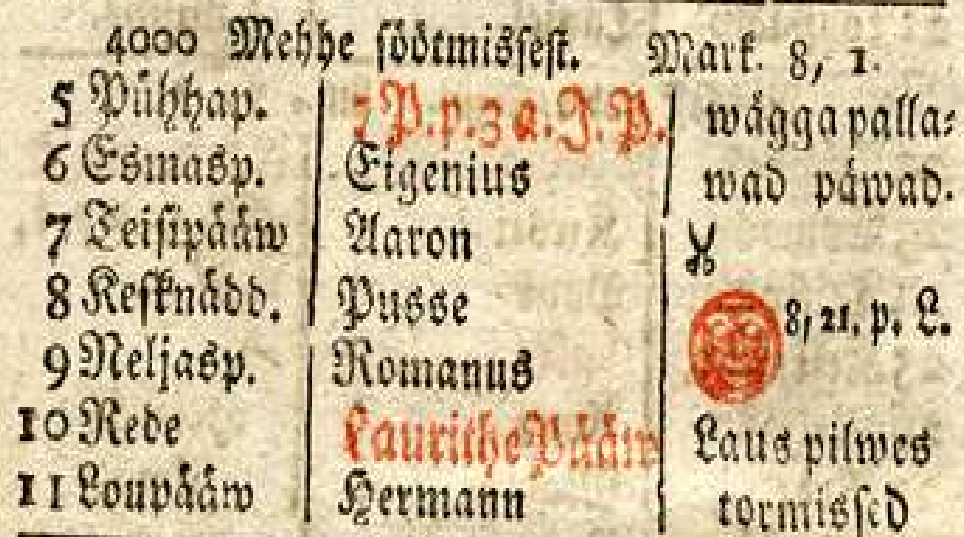 4000 Mehhe söötmissest. Mark. 8, 1.
5 Pühhap. 7 P. p. 3 a. J. P. wägga palla-
6 Esmasp. Eigenius wad päwad.
7 Teisipääw Aaron
8 Kesknädd. Pusse 8, 21. p. L.
9 Neljasp. Romanus
10 Rede Lauritse Pääw Laus pilwes
11 Loupääw Hermann tormissed